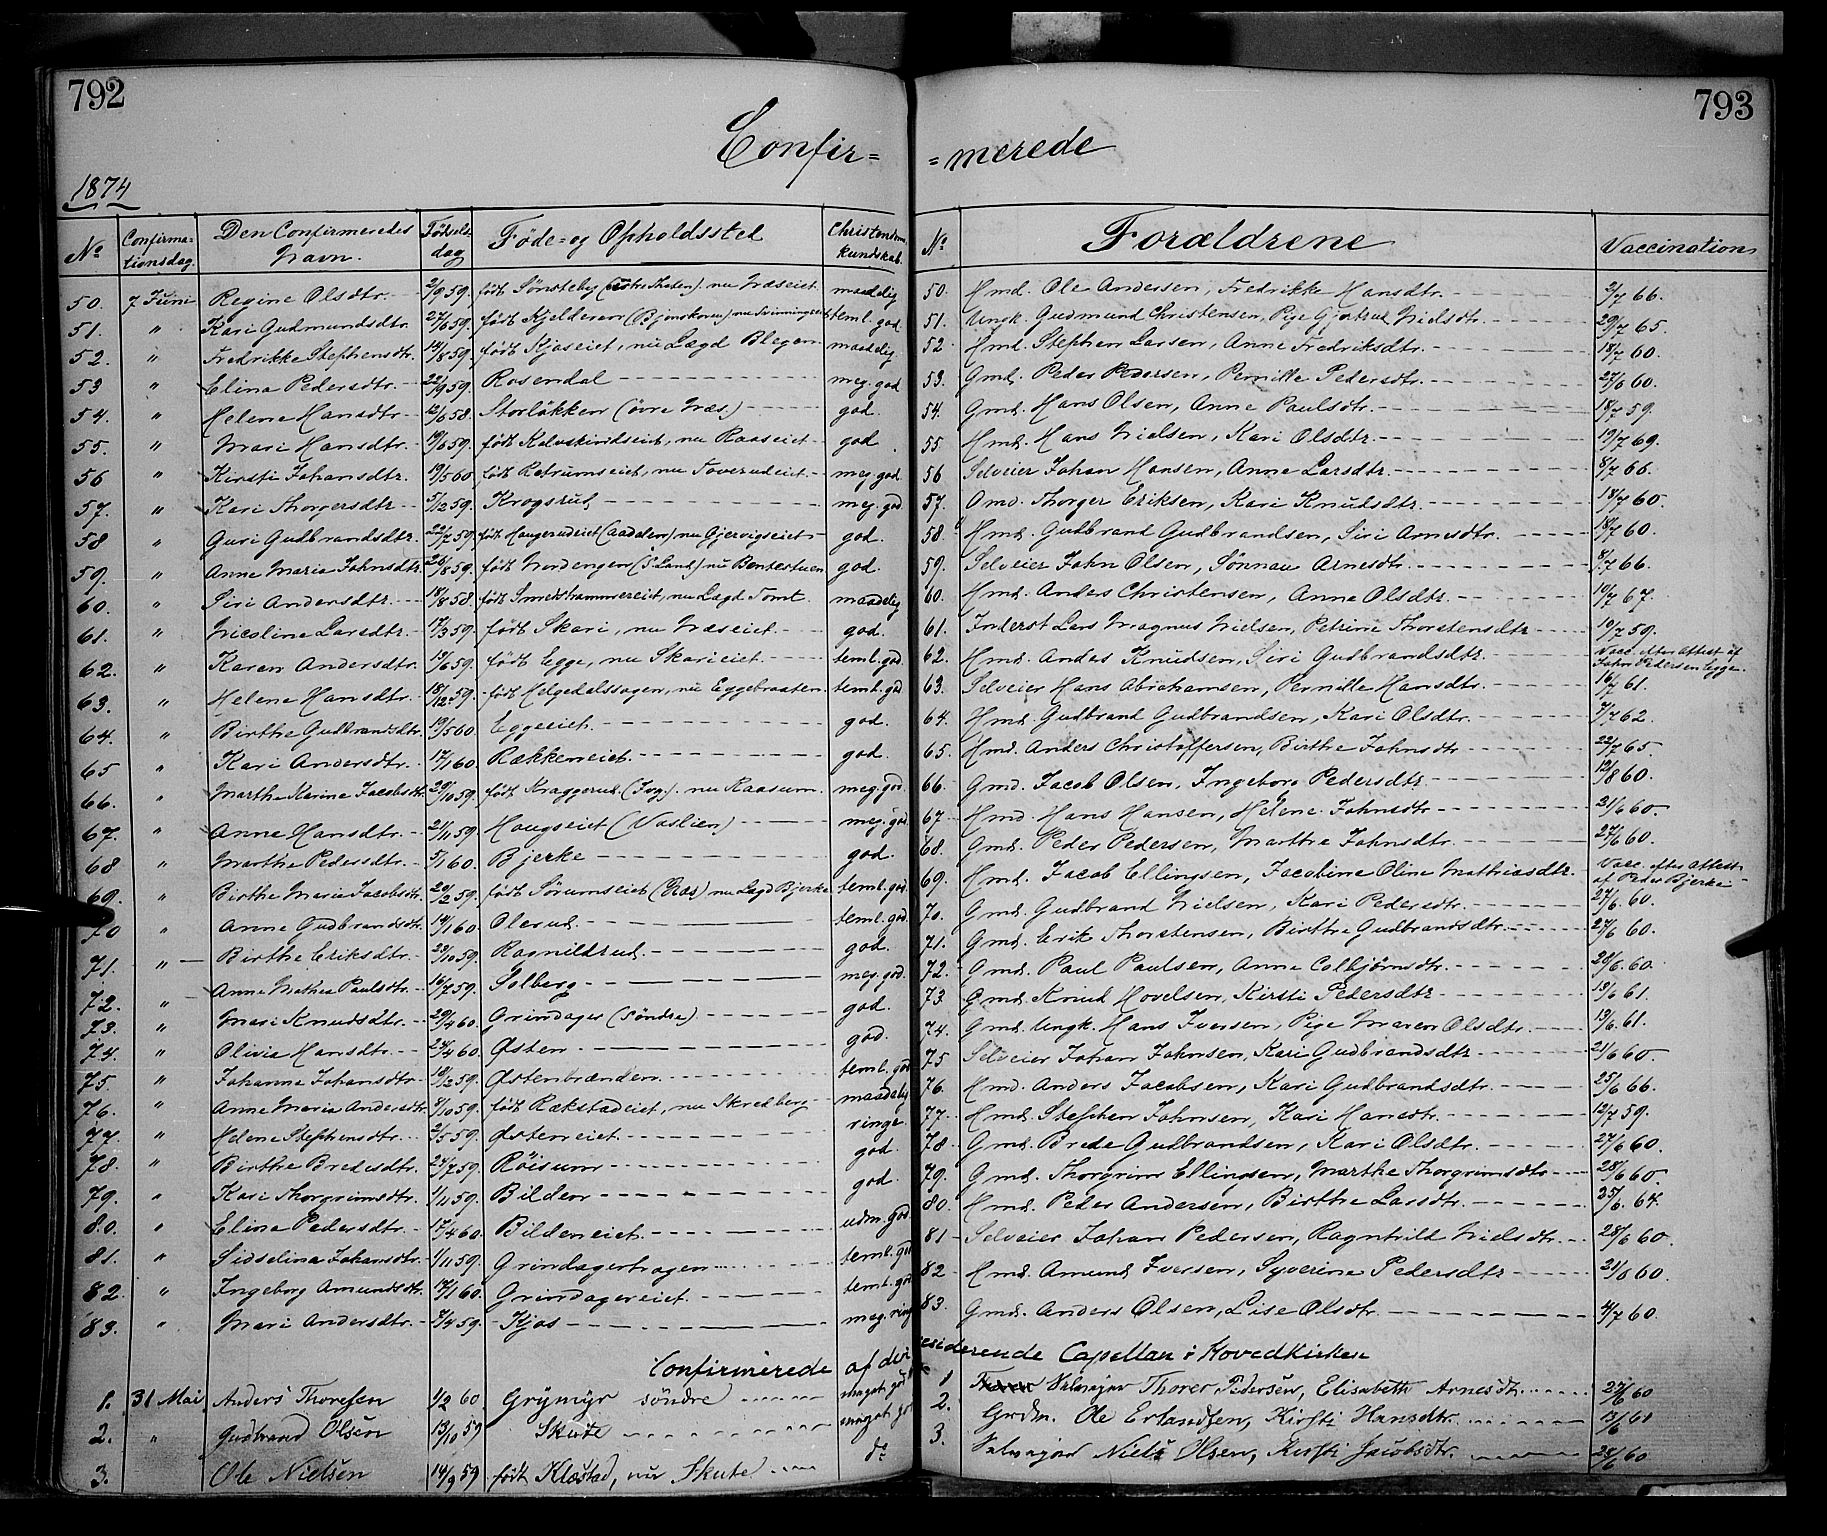 792
Confir=
1874
No Confirmationsdag. Den Confirmeredes Navn. Fødselsdag Føde- og Opholdssted Christendomskundskab.
50. 7 Juni Regine Olsdtr. 2/9 59. født Sønsteby nu Næseiet maadelig
51. " Kari Gudmundsdtr. 27/6 59. født Kjelderen (Bjoneskoven) nu Svinningseiet teml. god
52. " Fredrikke Stephensdtr. 14/8 59. født Kjoseiet, nu Lægd Blegen maadelig.
53 " Elina Pedersdtr. 22/9 59. Rosendal meg. god
54. " Helene Hansdtr. 12/6 58. Storløkken (øvre Næs.) god.
55. " Mari Hansdtr. 19/6 59. født Kalvskindseiet, nu Raaseiet god
56 " Kirsti Johansdtr. 19/5 60 født Rotrumseiet, nu Toverudeiet meg. god.
57. " Kari Thorgersdtr 5/12 59. Krogsrud meg. god
58 " Guri Gudbrandsdtr. 22/7 59. født Haugerudeiet (Aadalen) nu Gjervigseiet god.
59. " Anne Maria Johnsdtr. 26/8 59. født Nordengen (S. Land) nu Bentestuen god.
60. " Siri Andersdtr. 18/8 58 født Smedshammereiet, nu Lægd Tomt. maadelig
61. " Nicoline Larsdtr. 17/3 59. født Skari, nu Næseiet. god.
62. " Karen Andersdtr. 19/6 59. født Egge, nu Skarieiet teml. god
63. " Helene Hansdtr. 18/12 59. født Helgedalshagen, nu Eggebraaten teml. god
64. " Birthe Gudbrandsdtr. 19/5 60 Eggeeiet. god.
65 " Kari Andersdtr. 17/1 60 Rækkeneiet. god.
66. " Marthe Karine Jacobsdtr. 29/10 59. født Kraggerud (Jvg.) nu Raasum. meg. god.
67. " Anne Hansdtr. 21/11 59 Haugseiet (Naslien) meg. god
68 " Marthe Pedersdtr. 5/1 60. Bjerke god.
69. " Birthe Maria Jacobsdtr. 20/2 59. født Sørumseiet (Næs) nu Lægd Bjerke teml. god.
70 " Anne Gudbrandsdtr. 14/1 60. Olerud. teml. god.
71. " Birthe Eriksdtr. 29/10 59. Ragnildrud. god.
72. " Anne Mathea Paulsdtr. 16/7 59. Solberg meg. god.
73. " Mari Knudsdtr. 29/4 60. Grindager (Søndre) god.
74. " Olivia Hansdtr. 24/4 60. Østen god.
75. " Johanne Johansdtr 19/12 59. Østenbrænden teml. god
76. " Anne Maria Andersdtr. 9/10 59. født Rækstadeiet, nu Skredberg maadelig
77. " Helene Stephensdtr. 2/5 59. Østeneiet. ringe
78. " Birthe Bredesdtr. 24/7 59. Røisum god.
79. " Kari Thorgrimsdtr. 1/11 59. Bilden god.
80. " Elina Pedersdtr. 17/4 60. Bildeneiet. udm. god
81. " Sidselina Johansdtr. 1/11 59. Grindagerhagen teml. god
82 " Ingeborg Amundsdtr. 17/1 60. Grindagereiet. teml. god
83. " Mari Andersdtr. 7/4 59. Kjos meg. ring
Confirmerede af den
1. 31 Mai. Anders Thoresen 1/2 60 Grymyr søndre meget god
2. " Gudbrand Olsen 13/10 59 Skute meget god
3. Ole Nielsen 14/9 59 født Klæstad, nu Skute do
793
=merede
No Forældrene Vaccination
50. Hmd. Ole Andersen, Fredrikke Hansdtr. 2/7 66.
51. Ungk. Gudmund Christensen, Pige Gjertrud Nielsdtr. 29/7 65.
52. Hmd. Stephen Larsen, Anne Fredriksdtr. 18/7 60.
53. Gmd. Peder Pedersen, Pernille Pedersdtr. 27/6 60.
54. Gmd. Hans Olsen, Anne Paulsdtr. 18/7 59.
55. Hmd. Hans Nielsen, Kari Olsdtr. 19/7 69.
56 Selveier Johan Hansen, Anne Larsdtr. 8/7 66.
57. Gmd. Thorger Eriksen, Kari Knudsdtr. 18/7 60.
58 Hmd. Gudbrand Gudbrandsen, Siri Arnesdtr. 18/7 60.
59. Selveier John Olsen, Sønnau Arnesdtr. 8/7 66.
60. Hmd. Andes Christensen, Anne Olsdtr. 10/7 67.
61. Inderst Lars Magnus Nielsen, Petrine Thorstensdtr 10/7 59.
62. Hmd. Andes Knudsen, Siri Gudbrandsdtr. Vacc. efter Attest af John Pedersen Egge.
63. Selveier Hans Abrahamsen, Pernille Hansdtr. 16/7 61.
64. Hmd. Gudbrand Gudbrandsen, Kari Olsdtr. 7/7 62.
65. Hmd. Anders Christoffersen, Birthe Johnsdtr 22/7 65
66. Gmd. Jacob Olsen, Ingeborg Pedersdtr 12/8 60.
67. Hmd. Hans Hansen, Helene Johnsdtr 21/6 60.
68. Gmd. Peder Pedersen, Marthe Johnsdtr. 27/6 60.
69. Hmd. Jacob Ellingsen, Jacobine Oline Mathiasdtr. Vacc. efter Attest af Peder Bjerke
70. Gmd. Gudbrand Nielsen, Kari Pedersdtr. 27/6. 60.
71. Gmd. Erik Thorstensen, Birthe Gudbrandsdtr. 27/6 60.
72. Gmd. Paul Paulsen, Anne Colbjørnsdtr. 20/6. 60.
73. Gmd. Knud Hovelsen, Kirsti Pedersdtr 13/6 61.
74. Gmd. Ungk. Hans Iversen, Pige Maren Olsdtr. 13/6. 61.
75 Selveier Johan Johnsen, Kari Gudbrandsdtr 21/6 60.
76. Hmd. Anders Jacobsen, Kari Gudbrandsdtr. 25/6 66.
77. Hmd. Stephen Johnsen, Kari Hansdtr. 12/7 59.
78. Gmd. Brede Gudbrandsen, Kari Olsdtr. 27/6 60.
79. Gmd. Thorgrim Ellingsen, Marthe Thorgrimsdtr 28/6 60.
80. Hmd. Peder Andersen, Birthe Larsdtr. 25/6. 64.
81 Selveier Johan Pedersen, Ragnhild Nielsdtr. 28/6 60.
82 Hmd. Amund Iversen, Syverine Pedersdtr 21/6 60.
83. Gmd. Anders Olsen, Lise Olsdtr. 4/7 60.
residerende Capellan i Hovedkirken
1 Selvejer Thorer Pedersen, Elisabeth Arnesdtr. 27/6 60
2. Grdm. Ole Erlandsen, Kirsti Hansdtr. 13/6 61
3. Selvejer Niels Olsen, Kirsti Jacobsdtr. 28/6 60